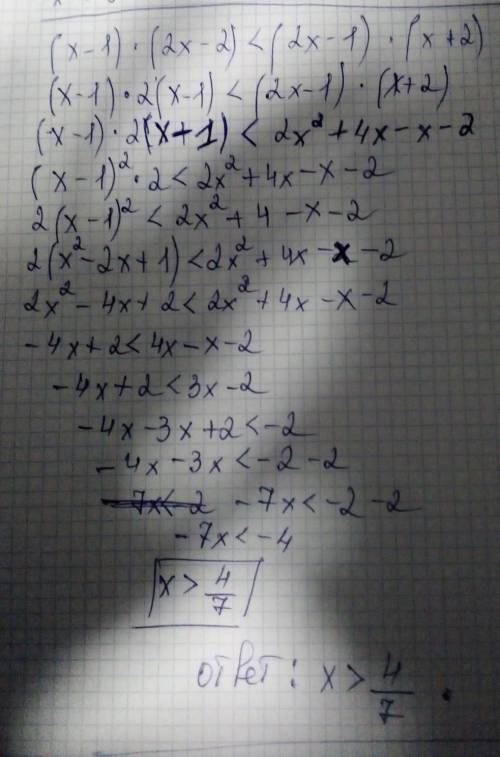 (x-1)·(2x-2)<(2x-1)·(x+2)
(x-1)·2(x-1)<(2x-1)·(x+2)
(x-1)·2(x+1)<2x²+4x-x-2
(x-1)²·2<2x²+4x-x-2
2(x-1)²<2x²+4-x-2
2(x²-2x+1)<2x²+4x-x-2
2x²-4x+2<2x²+4x-x-2
-4x+2<4x-x-2
-4x+2<3x-2
-4x-3x+2<-2
-4x-3x<-2-2
-7x<-2 -7x<-2-2
-7x<-4
x>4/7
ответ: x>4/7.